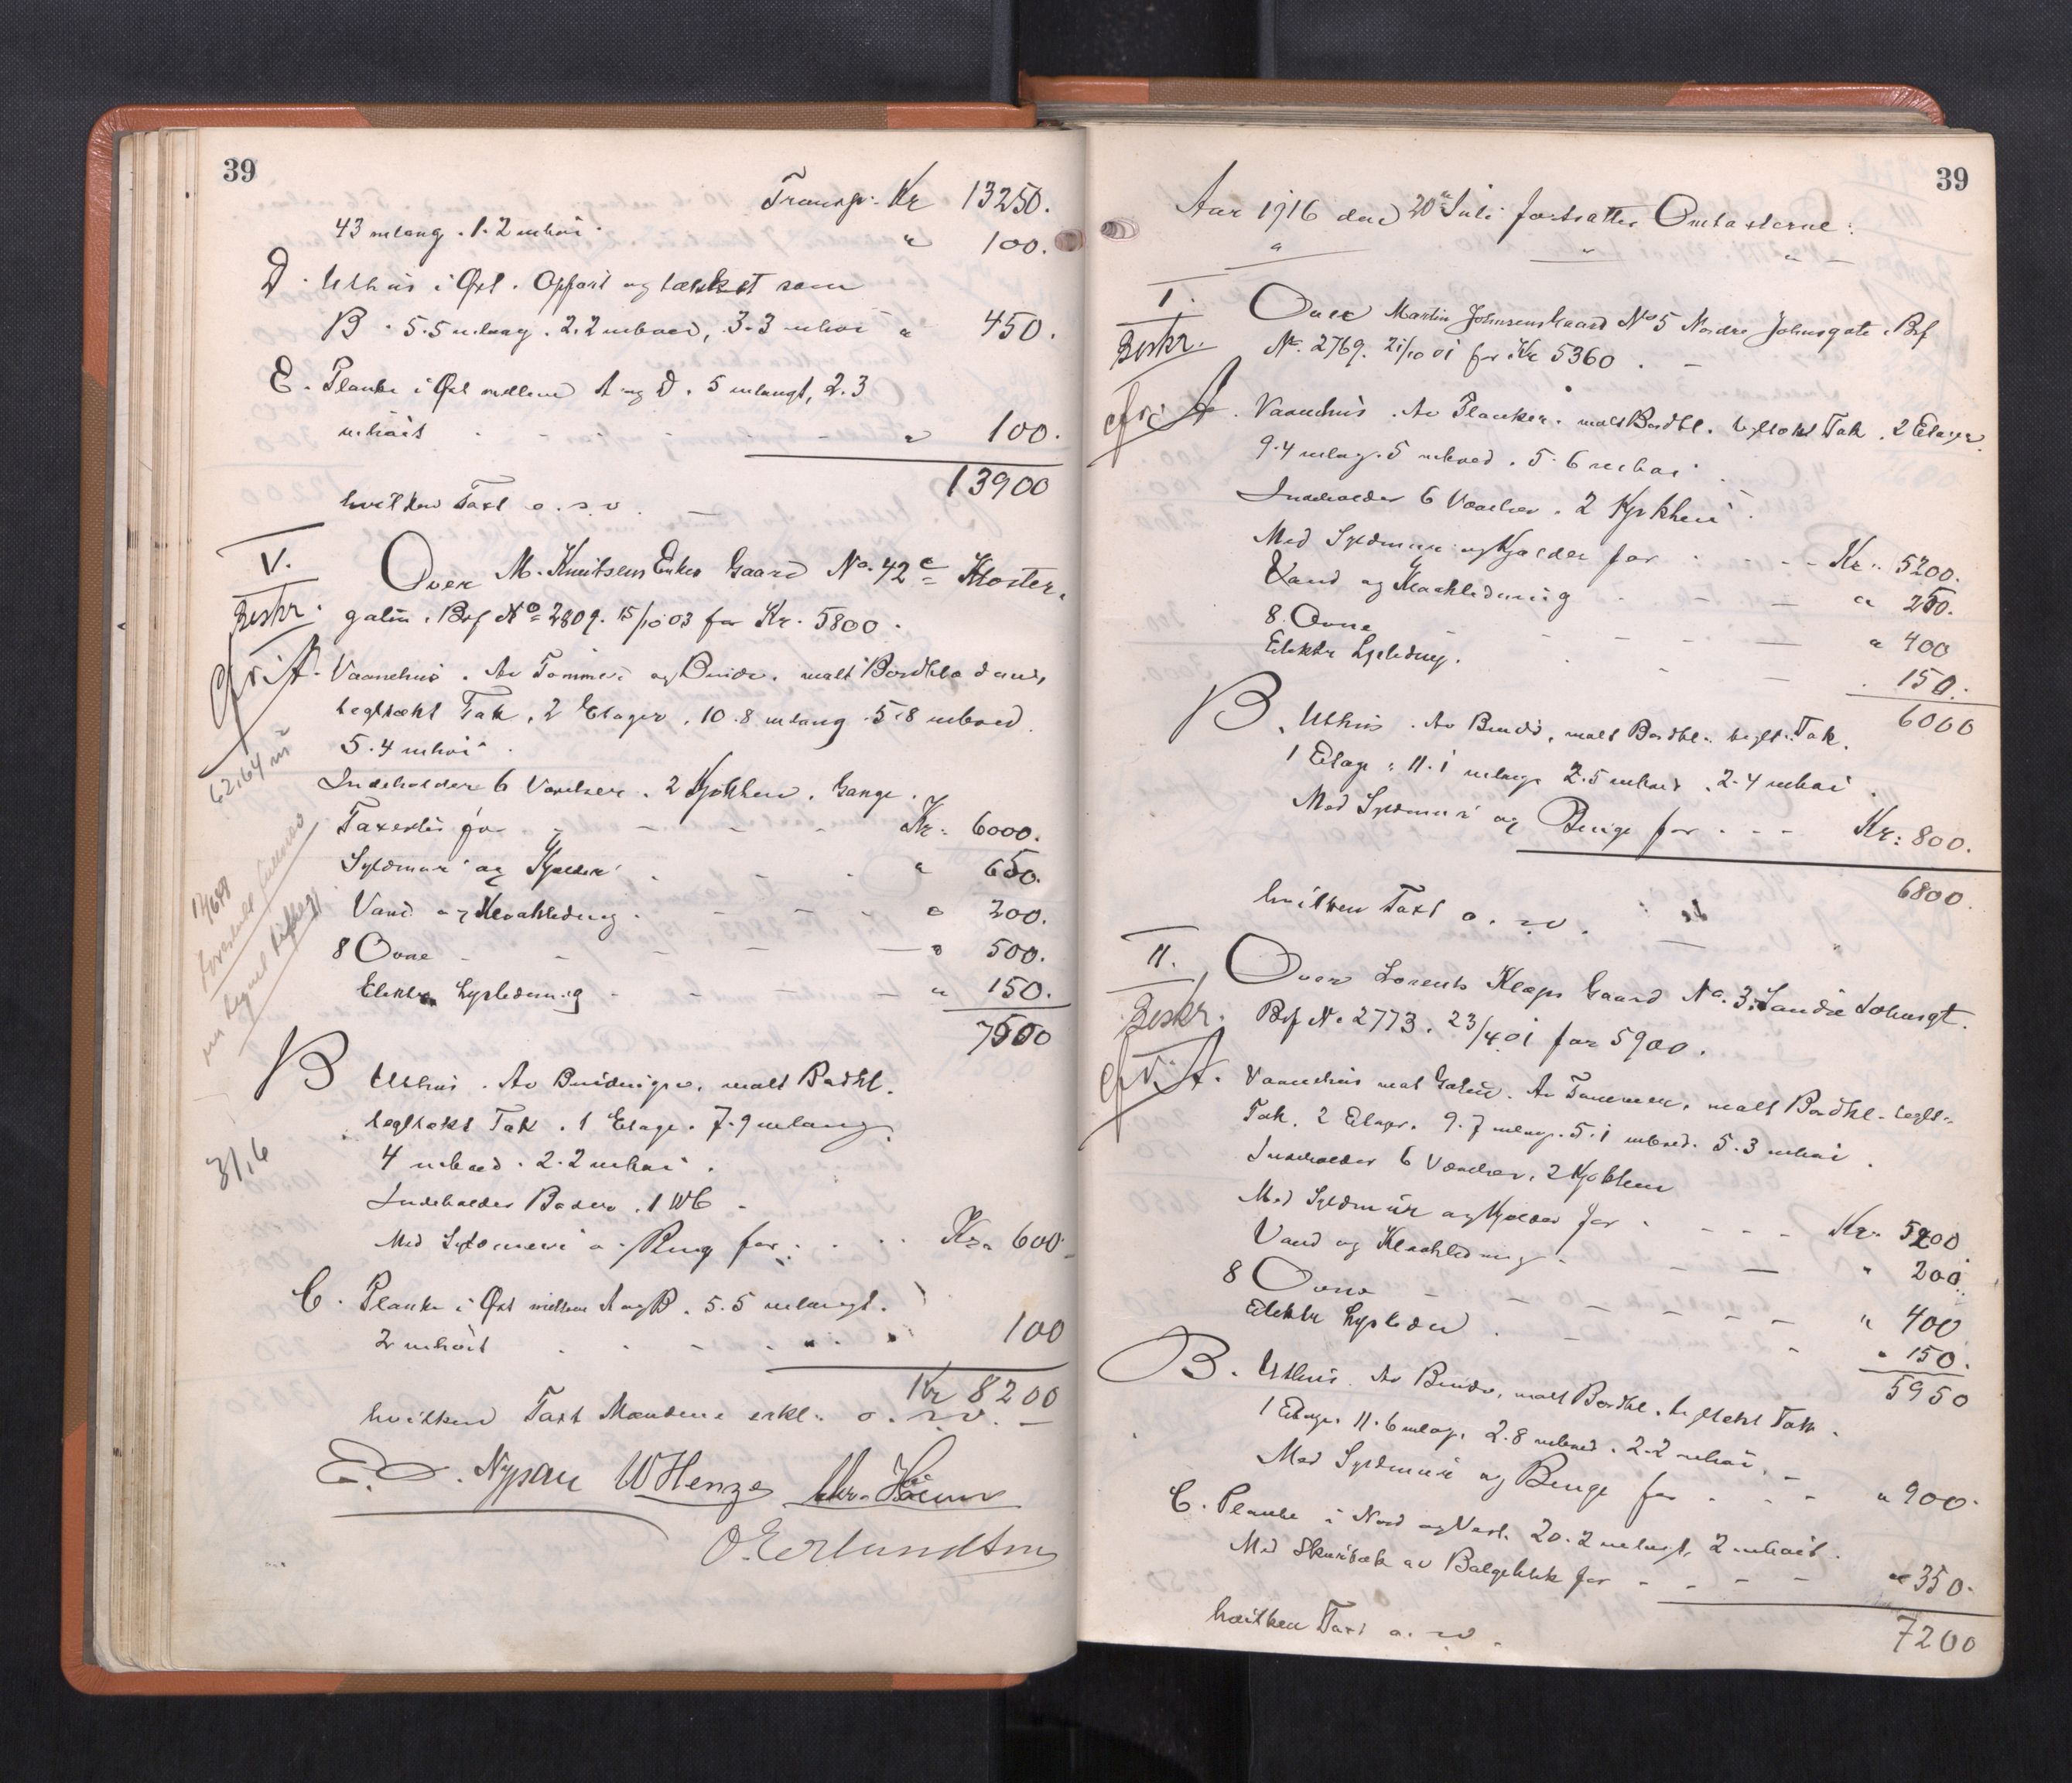 39
Transp. Kr 13250.
43 m lang . 1.2 m høi. " 100.
D. Uthus i Øst. Opført og tækket som
B. 5.5 m lang. 2.2 m bred, 3.3 m høi " 450.
E. Planke i Øst mellem A og D. 5 m langt, 2.3
m høit " 100.
13900
hvilken Taxt o. s. v.
V. Over M. Knutsens Enkes Gaard No. 42c Kloster-
Beskr. gaten. Brf No 2809. 15/10 03 for Kr. 5800.
A. Vaanehus. Av Tømmer og Bindv. malt Bordklædning,
teglt ækt Tak, 2 Etager, 10.8 m lang 5.8 m bred.
5.4 m høi.
62,64 m²
Indeholder 6 Værelser. 2 Kjøkken. Gange.
Taxertes for Kr. 6000.
Syldmur og Kjælder " 650.
Vand og Kloakledning " 200.
8 Ovne " 500.
Elektr. Lysledning " 150.
7500
B Uthus. Av Bindingsv. malt Bordkl.
tegltækt Tak. 1 Etage. 7.9 m lang.
4 m bred. 2.2 m høi.
31,6
Indeholder Boder. 1 WC
Med Syldmur o. Ring for Kr. 600
C. Planke i Øst mellem A og B. 5.5 m langt.
2 m høit 100
Kr 8200
hvilken Taxt Mændene erkl. o. s. v.
E. D. Nypan W Henze Chr. Høeun
O. Erlundsen
39
Aar 1916 den 20de Juli fortsattes Omtaxterne:
I. Over Martin Johnsens Gaard No 5 Nordre Johnsgate. Brf
Beskr. No. 2769. 21/10 01 for Kr 5360.
A. Vaanehus. Av Planker. malt Bordkl. tegltækt Tak. 2 Etager.
9.4 m lang. 5 m bred. 5.6 m høi
Indeholder 6 Værelser. 2 Kjøkken.
Med Syldmur og Kjælder for Kr. 5200.
Vand og Kloakledning " 250.
8 Ovne " 400
Elektr Lysledng. 150.
6000
B. Uthus. Av Bindv, malt Bordkl. teglt. Tak.
1 Etage. 11.1 m lang 2.5 m bred. 2.4 m høi.
Med Syldmur og Binge for Kr. 800.
6800.
hvilken Taxt o. s. v.
II. Over Lorents Klæps Gaard No. 3. Søndre Johnsgt.
Beskr. Brf No 2773. 23/4 01 for 5900.
A. Vaanehus mot Gaten. Av Tømmer, malt Bordkl. teglt.
Tak. 2 Etager. 9.7 m lang. 5.1 m bred. 5.3 m høi.
Indeholder 6 Værelser. 2 Kjøkken
Med Syldmur og Kjælder for Kr. 5200
Vand og Kloakledning " 200.
8 Ovne " 400
Elektr Lysledn " 150.
5950
B. Uthus. Av Bindv, malt Bordkl. tegltækt Tak.
1 Etage. 11.6 m lang. 2.8 m bred. 2.2 m høi.
Med Syldmur og Binge for " 900.
C. Planke i Nord og Vest. 20.2 m langt, 2 m høit.
Med Skurtak av Bølgeblik for " 350.
7200
hvilken Taxt o. s. v.